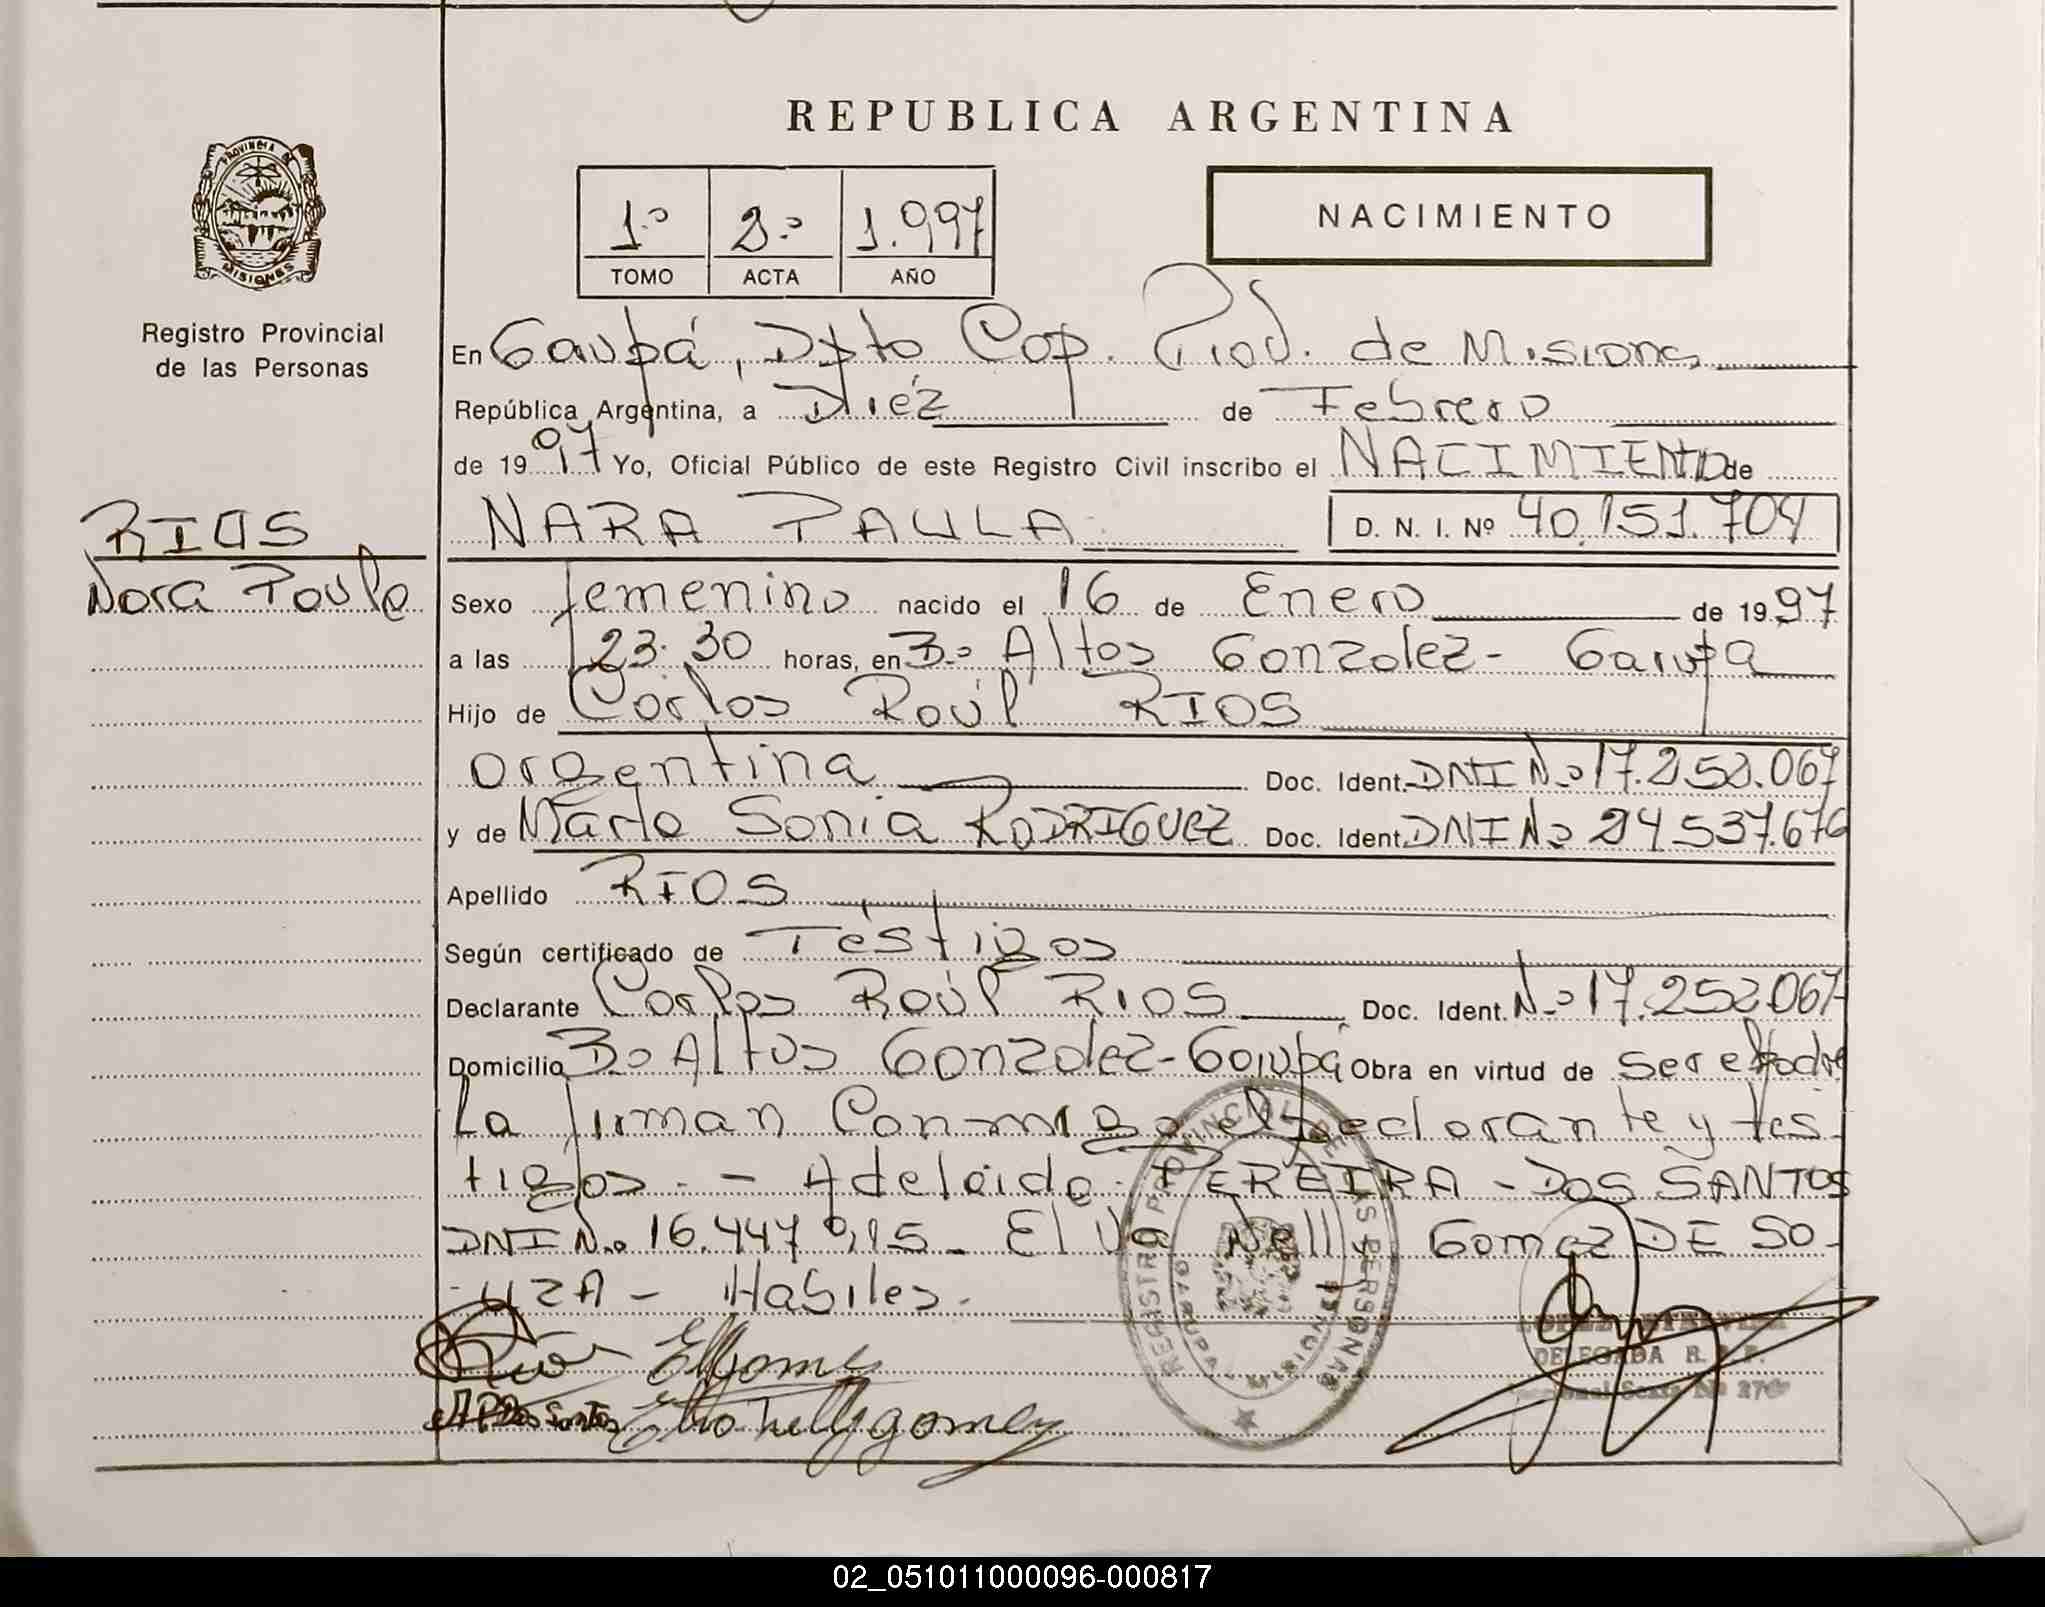 REPUBLICA ARGENTINA
PROVINCIA DE
MISIONES
Registro Provincial
de las Personas
1º 2º 1.997
TOMO ACTA AÑO
NACIMIENTO
En Garupá, Dpto Cap. Prov. de Misiones
República Argentina, a Diéz de Febrero
de 1997 Yo, Oficial Público de este Registro Civil inscribo el NACIMIENTO de
RIOS
Nara Paula
NARA PAULA D. N. I. Nº 40.151.704
Sexo femenino nacido el 16 de Enero de 1997
a las 23.30 horas, en Bº Altos Gonzalez - Garupa
Hijo de Carlos Raúl RIOS
argentina Doc. Ident. DNI Nº 17.252.067
y de Marta Sonia RODRIGUEZ Doc. Ident. DNI Nº 24.537.676
Apellido RIOS
Según certificado de Téstigos
Declarante Carlos Raúl RIOS Doc. Ident. Nº 17.252.067
Domicilio Bº Altos Gonzalez - Garupá Obra en virtud de ser el Padre
La firman Conmigo el Declarante y tes
tigos. - Adelaida PEREIRA - DOS SANTOS
DNI Nº 16.447.915 - Elva Nelly Gomez DE SO
UZA - Habiles.
REGISTRO PROVINCIAL DE LAS PERSONAS
GARUPA MISIONES
DELEGADA R. P. P.
02_051011000096-000817